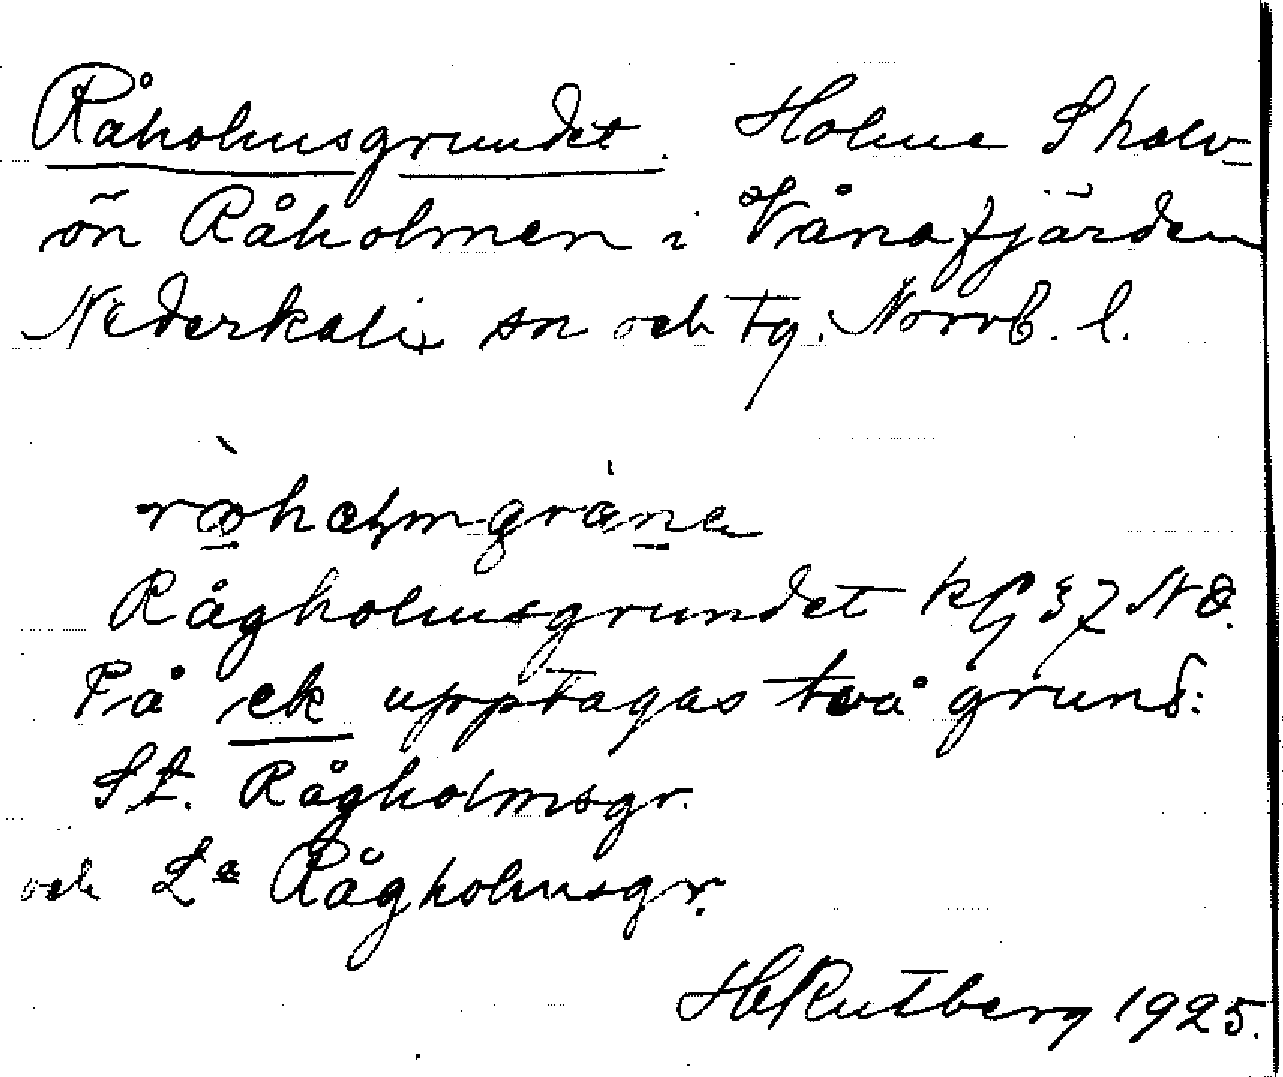 Råholmsgrundet. Holme S halv-
ön Råholmen i Vånafjärden
Nederkalix sn och tg. Norrb. l.
Rågholmsgrundet kG 37 NO.
På ek upptagas två grund:
St. Rågholmsgr.
och La Rågholmsgr.
H Rutberg 1925.